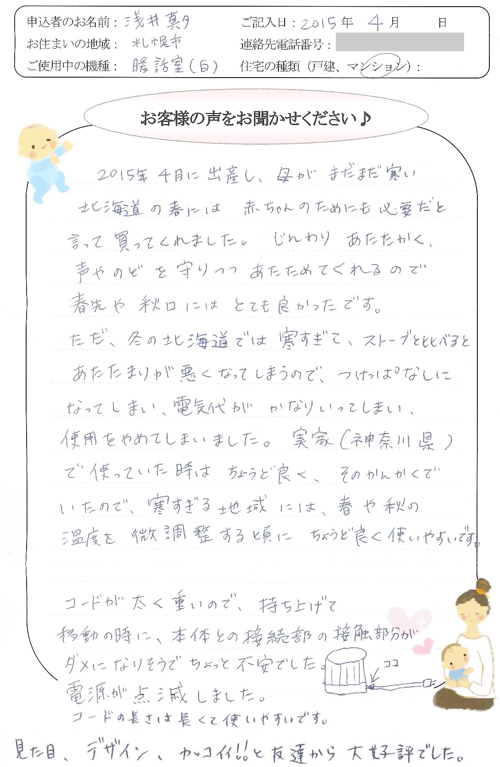 申込者のお名前：浅井真夕 ご記入日：2015年 4月 日
お住まいの地域：札幌市 連絡先電話番号：
ご使用中の機種：暖話室(白) 住宅の種類（戸建、マンション）：
お客様の声をお聞かせください♪
2015年4月に出産し、母がまだまだ寒い
北海道の春には 赤ちゃんのためにも必要だと
言って買ってくれました。じんわり あたたかく、
声やのどを守りつつ あたためてくれるので
春先や秋口には とても良かったです。
ただ、冬の北海道では寒すぎて、ストーブと比べると
あたたまりが悪くなってしまうので、つけっぱなしに
なってしまい、電気代が かなりいってしまい、
使用をやめてしまいました。実家(神奈川県)
で使っていた時は ちょうど良く、そのかんかくで
いたので、寒すぎる地域には、春や秋の
温度を微調整する頃に ちょうど良く使いやすいです。
コードが太く重いので、持ち上げて
移動の時に、本体との接続部の接触部分が
ダメになりそうでちょっと不安でした。
ココ
電源が点滅しました。
コードの長さは長くて使いやすいです。
見た目、デザイン、カッコイイ!!と友達から大好評でした。